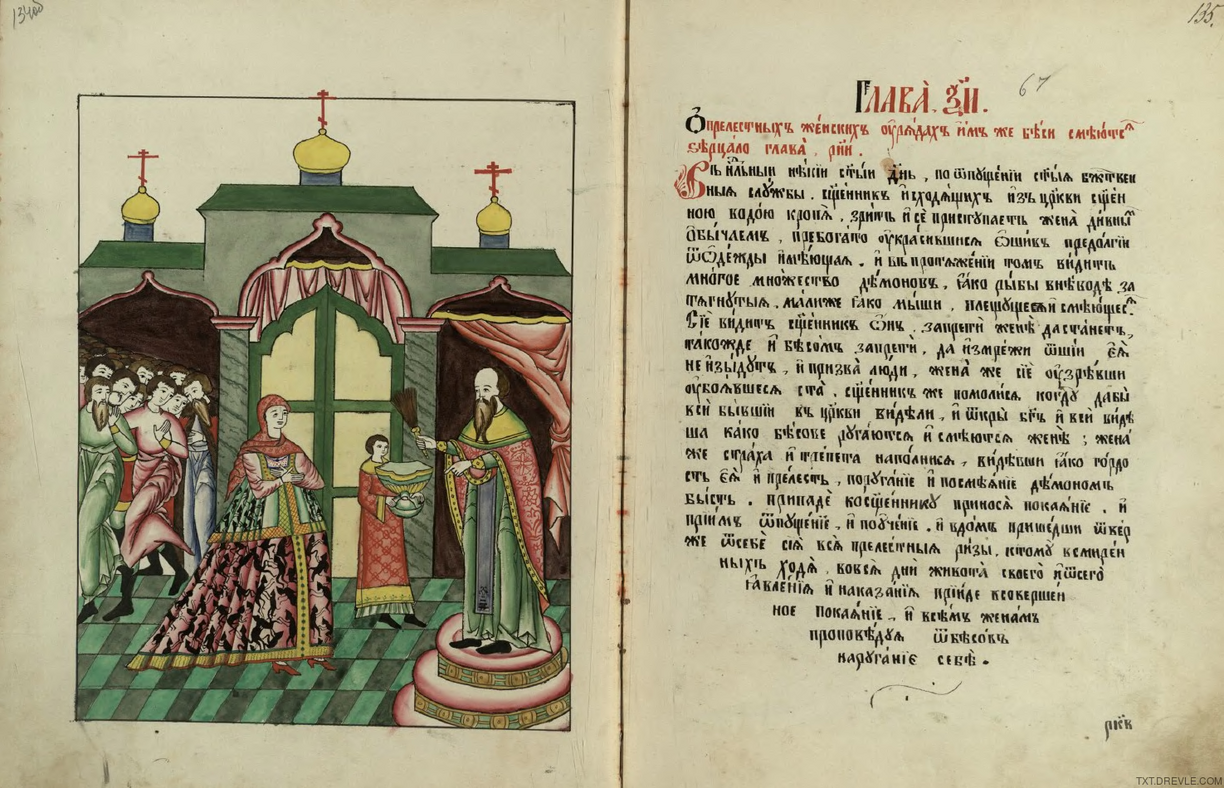 134об
135.
67
Глава̀ . з҃і .
О҆ прелестныхъ же́нскихъ ѹ҆рѧдахъ и҆мъ же бѣси смѣю́тсѧ
зерцало глава̀ , рн҃і .
нѣкїи ст҃ыи дн҃ь , по ѿпꙋще́нїи ст҃ыѧ бжтвен
ныѧ слꙋжбы . сщ҃е́нникъ и҆сходѧ́щихъ и҆зъ цр҃кви сщ҃е́н
ною водо́ю кропѧ̀ , зритъ и҆ сѐ пристꙋплетъ жена̀ ди́вны
ѻбы́чаемъ , пребога́то ѹ҆кра́сившисѧ ѻ҆шивъ предо́лгїи
ѿ ѻ҆де́жды и҆мѣ́ющаѧ . и҆ въ протѧже́нїи томъ ви́дитъ
мно́гое мно́жество де́моновъ , ꙗ҆́ко ры́бы в не́воде за
тѧ́гнꙋтыѧ , ма́лиже ꙗ҆́ко мы́ши , плещꙋщесѧ и҆ смѣю́щесѧ .
Сїѐ ви́дитъ сщ҃е́нникъ ѻ҆нъ , запретѝ женѣ̀ да ста́нетъ ,
та́кожде и҆ бѣсомъ запретѝ , да и҆з мре́жи ѿшїи є҆ѧ̀
не и҆зы́дꙋтъ , и҆ призва̀ лю́ди , жена̀ же сїѐ ѹ҆зрѣ́вши
ѹ҆боѧ́вшесѧ ста̀ . сщ҃е́нникъ же помоли́сѧ бг҃ꙋ дабы̀
всѝ бы́вшїи въ цр҃кви ви́дели , и҆ ѿкры̀ бг҃ъ и҆ всѝ ви́дѣ
ша ка́ко бѣсове рꙋга́ютсѧ и҆ смѣю́тсѧ женѣ̀ ; жена́
же стра́ха и҆ тре́пета напо́лнисѧ , ви́дѣвши ꙗ҆́ко го́рдо
сть є҆ѧ̀ и҆ пре́лесть , порꙋга́нїе и҆ посмѣѧ́нїе де́мономъ
бы́сть . припадѐ ко сщ҃е́нникꙋ приносѧ̀ покаѧ́нїе . и҆
прїи́мъ ѿпꙋще́нїе , и҆ поꙋче́нїе . и҆ в до́мъ прише́дши ѿве́р
же ѿ себѐ сїѧ̀ всѧ̀ преле́стныѧ ри́зы , ктомꙋ̀ в смире́н
ныхъ ходѧ̀ , во всѧ̀ дни̑ живота̀ своегѡ̀ и҆ ѿ сего
ꙗ҆вле́нїѧ и҆ наказа́нїѧ прїи́де в соверше́н
ное покаѧ́нїе , и҆ всѣ́мъ жена́мъ
проповѣ́дꙋѧ ѿ бѣсо́въ
нарꙋга́нїе себѣ̀ .
рк҃в
TXT.DREVLE.COM